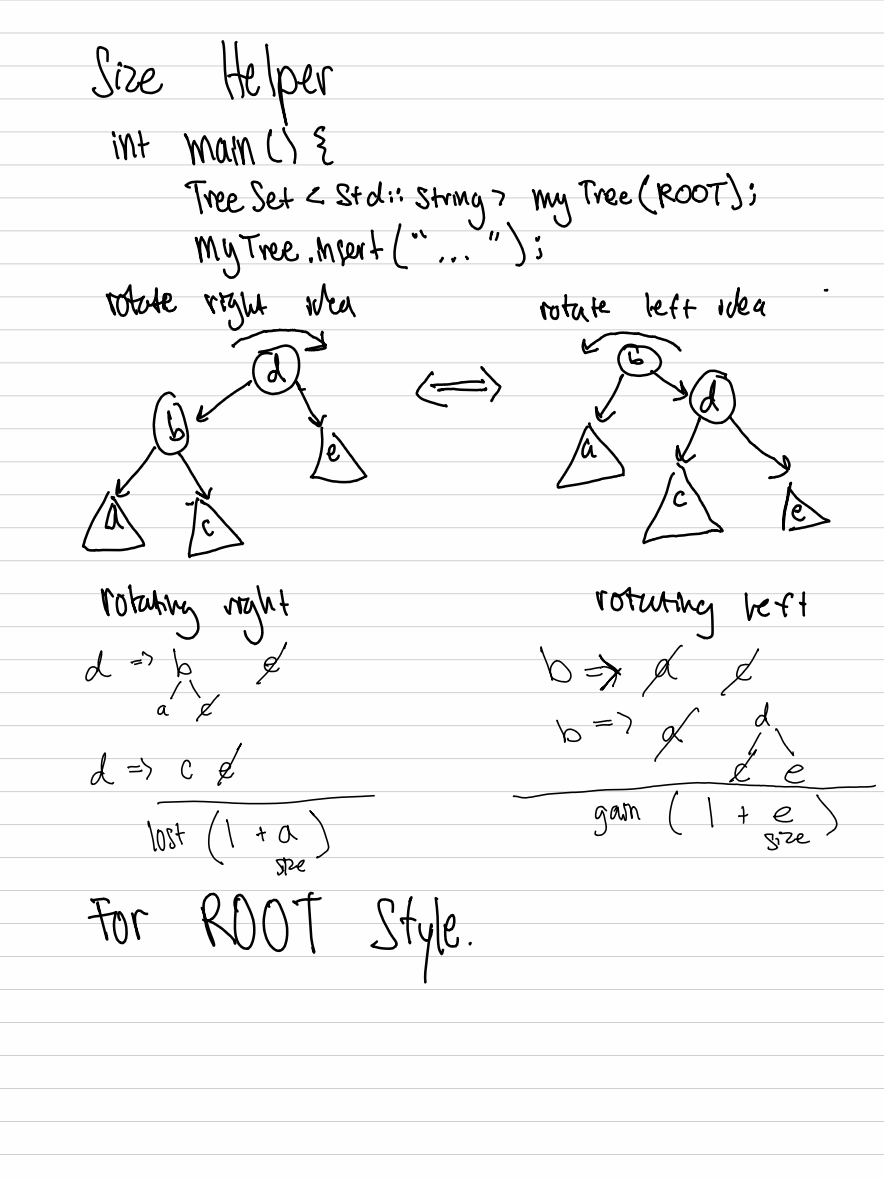 Size Helper
int main() {
TreeSet < std::string > myTree(ROOT);
MyTree.insert("...");
rotate right idea
rotate left idea
d
b
e
a c
b
d
a
c
e
rotating right
rotating left
d => b e
a c
d => c e
lost (1 + a)
size
b => a c
b => a d
c e
gain (1 + e)
size
For ROOT Style.